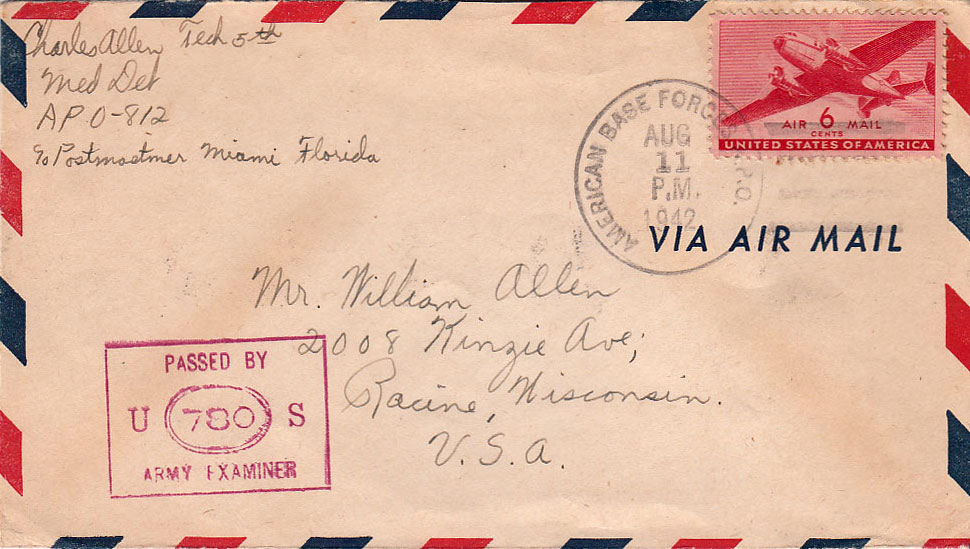 Charles Allen Tech 5th
Med Det
APO-812
c/o Postmastmer Miami Florida
AIR 6 MAIL
CENTS
UNITED STATES OF AMERICA
AMERICAN BASE FORCES A.P.O.
AUG
11
P.M.
1942
VIA AIR MAIL
Mr. William Allen
2008 Kinzie Ave;
Racine, Wisconsin.
U.S.A.
PASSED BY
U 780 S
ARMY EXAMINER